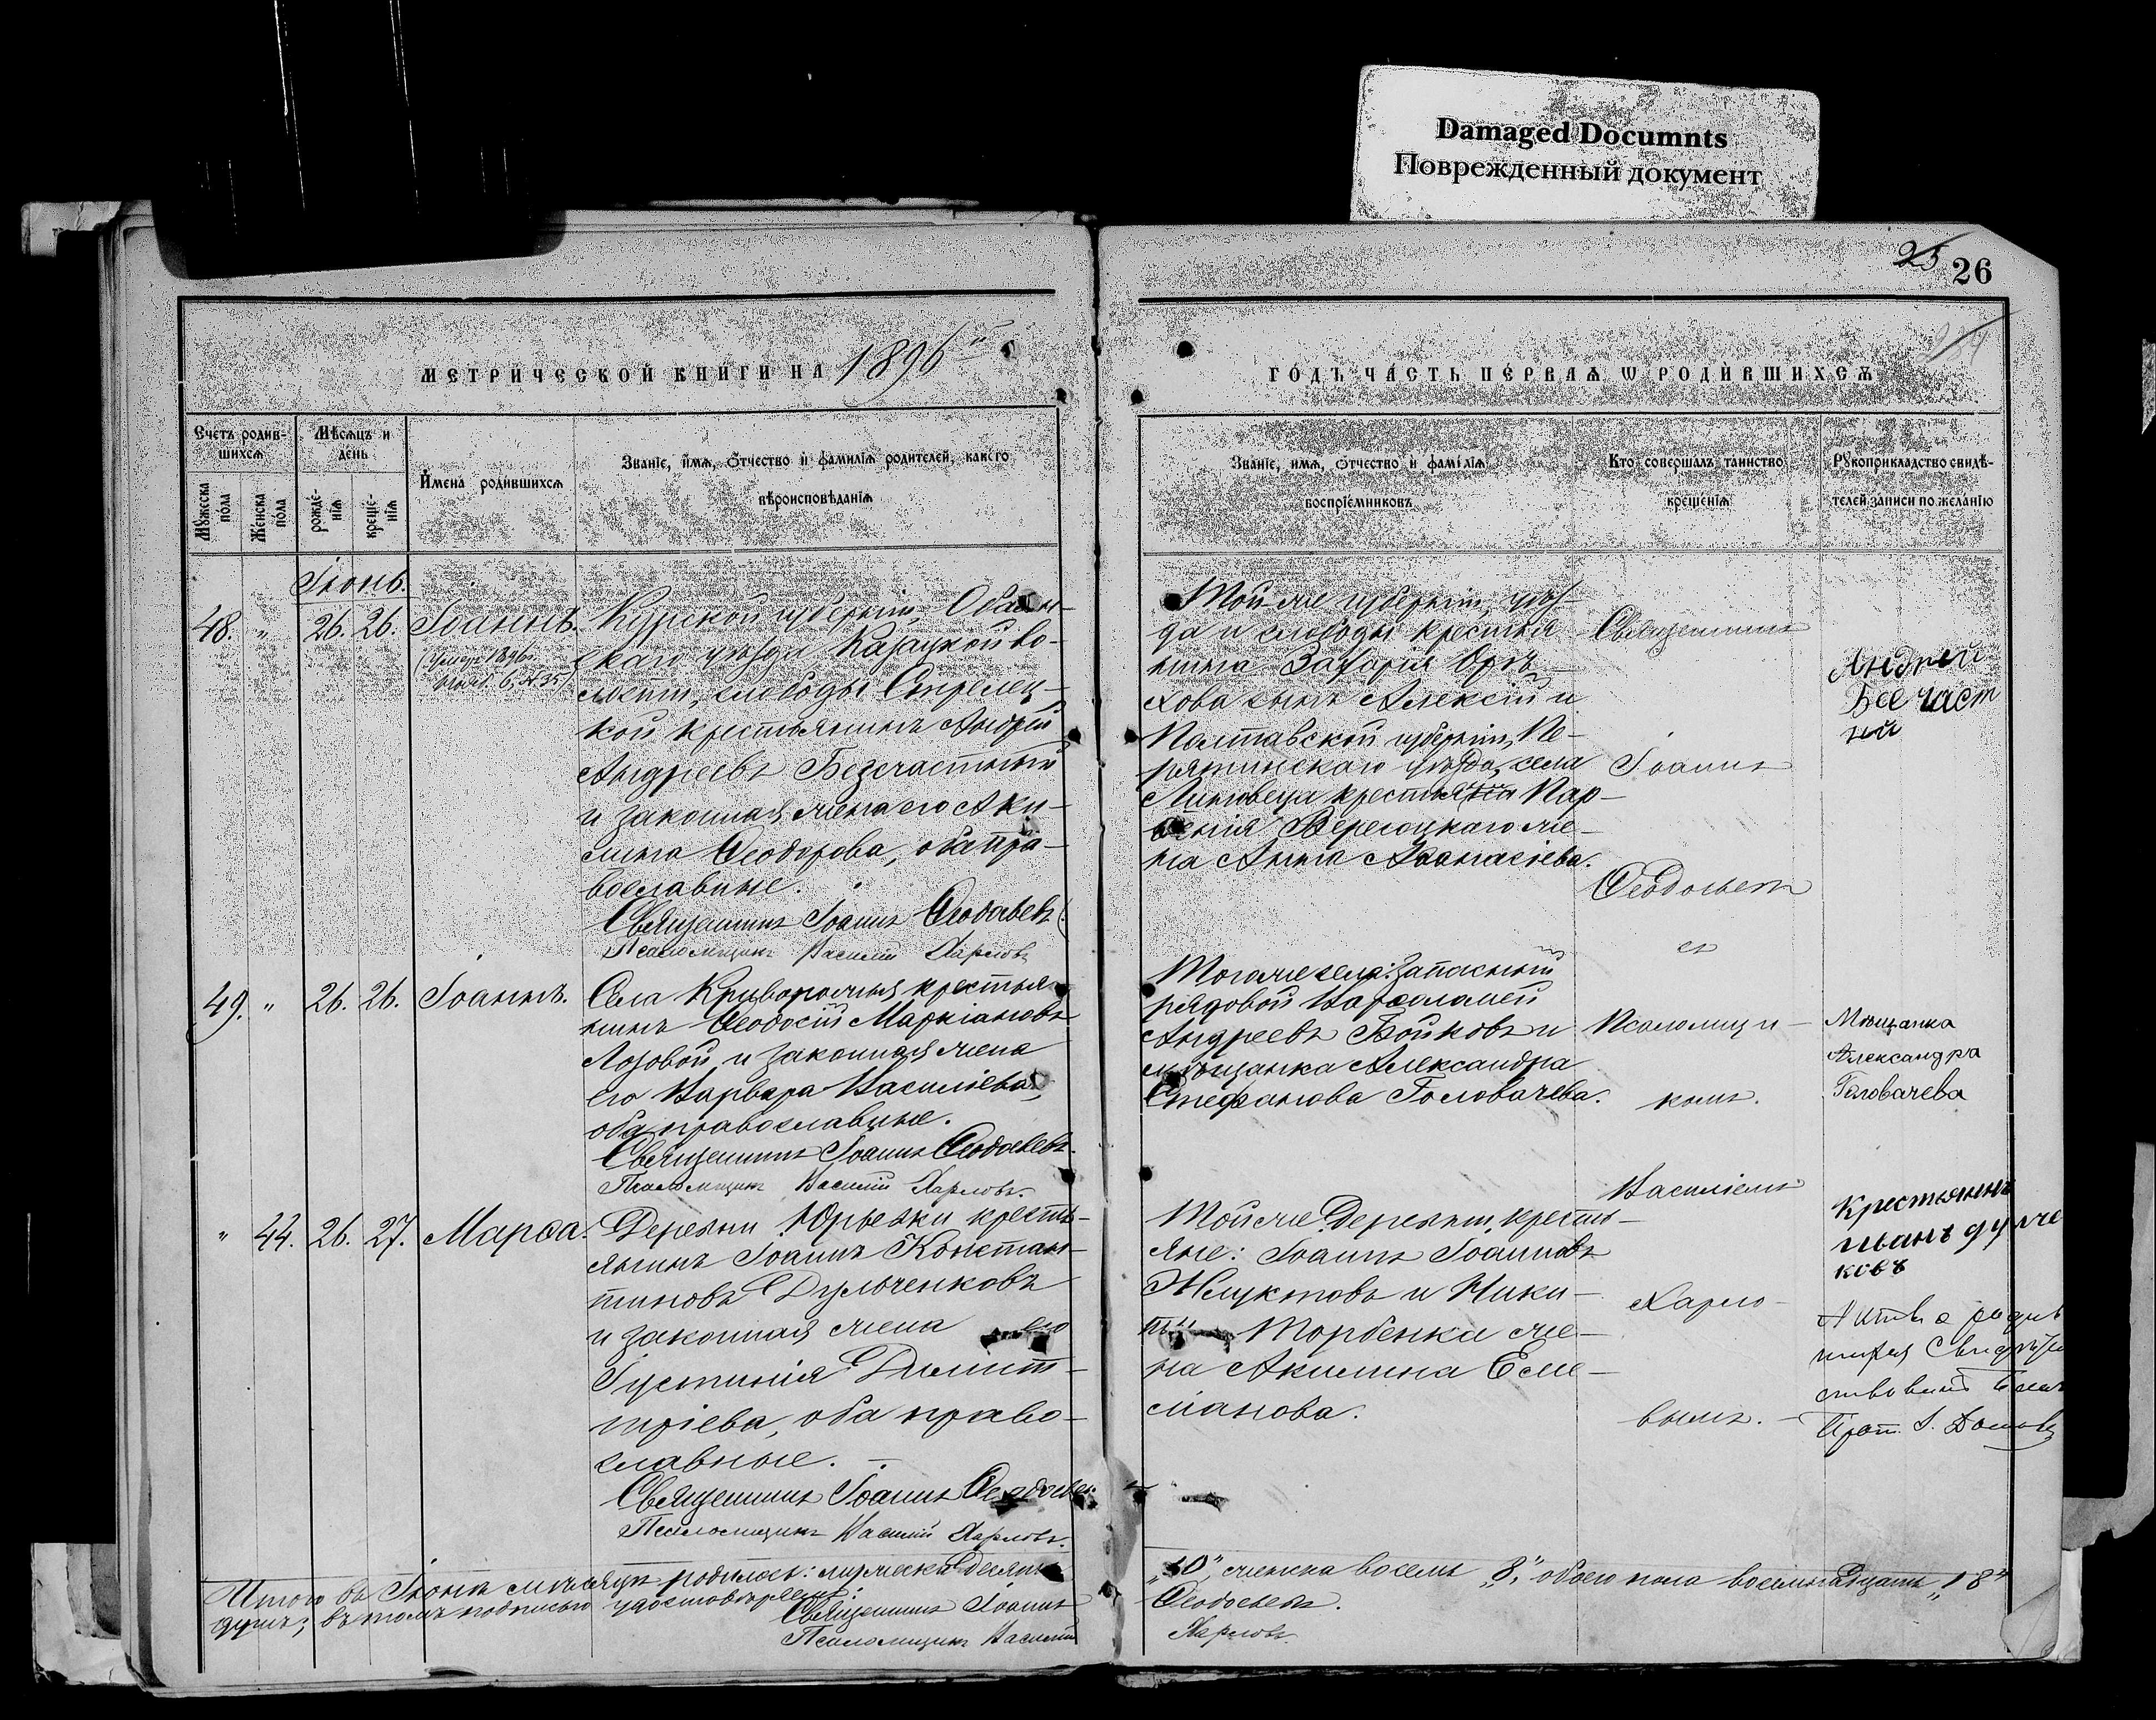 Damaged Documnts
Поврежденный документ
25 26
МЕТРИЧЕСКОЙ КНИГИ НА 1896й
ГОДЪ ЧАСТЬ ПЕРВАЯ Ѡ РОДИВШИХСЯ
Счетъ родив-
шихся
Мѣсяцъ и
день
Мужеска
пола
Женска
пола
рожде-
нія
креще-
нія
Имена родившихся
Званіе, имя, отчество и фамилія родителей, какого
вѣроисповѣданія
Званіе, имя, отчество и фамілія
воспріемниковъ
Кто совершалъ таинство
крещенія
Рукоприкладство свидѣ-
телей записи по желанію
Іюнь.
48. " 26. 26. Іоаннъ.
Курской губерніи, Обаян-
скаго уѣзда, Казацкой во-
лости, слободы Стрелец-
кой крестьянинъ Андрей
Андреевъ Безчастный
и законная жена его Аки-
лина Ѳеодорова, оба пра-
вославные.
Священникъ Іоаннъ Ѳеодосьевъ
Псаломщикъ Василій Харловъ
Той же губерніи, уѣз-
да и слободы крестья-
нина Захарія Орѣ-
хова сынъ Алексій и
Полтавской губерніи, Пи-
рятинскаго уѣзда, села
Линовеца крестьянина Пар-
ѳенія Вересоцкаго же-
на Анна Аѳанасіева.
Священникъ
Іоаннъ
Ѳеодосьевъ
съ
Псаломщи-
комъ
Василіемъ
Харло-
вымъ.
Андрей
Бесчаст
ний
49. " 26. 26. Іоаннъ.
Села Криворожья крестья-
нинъ Ѳеодосій Маркіановъ
Лозовой и законная жена
его Варвара Василіева,
оба православные.
Священникъ Іоаннъ Ѳеодосьевъ.
Псаломщикъ Василій Харловъ.
Того же села: запасный
рядовой Варѳоломей
Андреевъ Бойковъ и
мѣщанка Александра
Стефанова Головачева.
Мѣщанка
Александра
Головачева
" 44. 26. 27. Марѳа.
Деревни Юрьевки кресть-
янинъ Іоаннъ Констан-
тиновъ Дульченковъ
и законная жена его
Іустинія Димит-
ріева, оба право-
славные.
Священникъ Іоаннъ Ѳеодосьевъ
Псаломщикъ Василій Харловъ.
Той же деревни, кресть-
яне: Іоаннъ Іоанновъ
Жлуктовъ и Ники-
ты Торбенка же-
на Акилина Еме-
ліанова.
Крестьянинъ
иванъ дулче
ковъ
Прот. І.
Итого въ Іюнѣ мѣсяцѣ родилось: мужеска десять „10“, женска восемь „8“, обоего пола восемнадцать „18“
душъ; въ томъ подписью удостовѣряемъ:
Священникъ Іоаннъ Ѳеодосьевъ.
Псаломщикъ Василій Харловъ